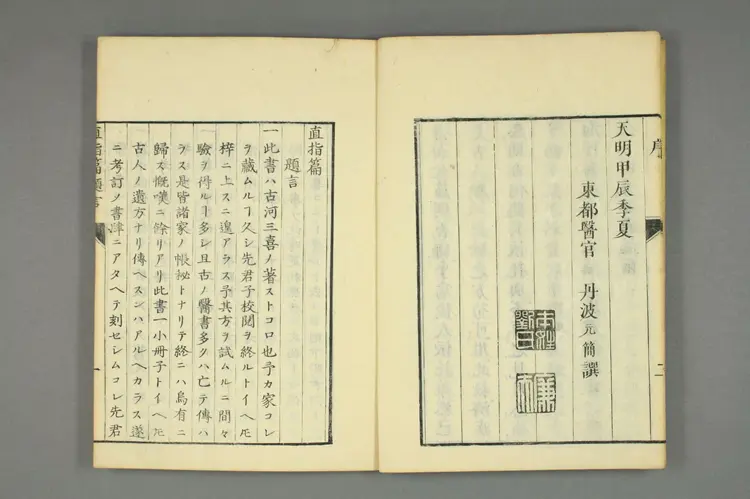 序
天明甲辰季夏
東都醫官 丹波元簡譔
二
本姓劉氏
廉夫
直指篇
題言
一此書ハ古河三喜ノ著ストコロ也予カ家コレ
ヲ藏ムルヿ久シ先君子校閲ヲ終ルトイヘ𪜈
梓ニ上スニ遑アラス予其方ヲ試ムルニ間々
驗ヲ得ルヿ多シ且古ノ醫書多クハ亡テ傳ハ
ラス是皆諸家ノ帳祕トナリテ終ニハ烏有ニ
歸ス慨嘆ニ餘リアリ此書一小冊子トイヘ𪜈
古人ノ遺方ナリ傳ヘスンハアルヘカラス遂
ニ考訂ノ書肆ニアタヘテ刻セシムコレ先君
直指篇題言
一